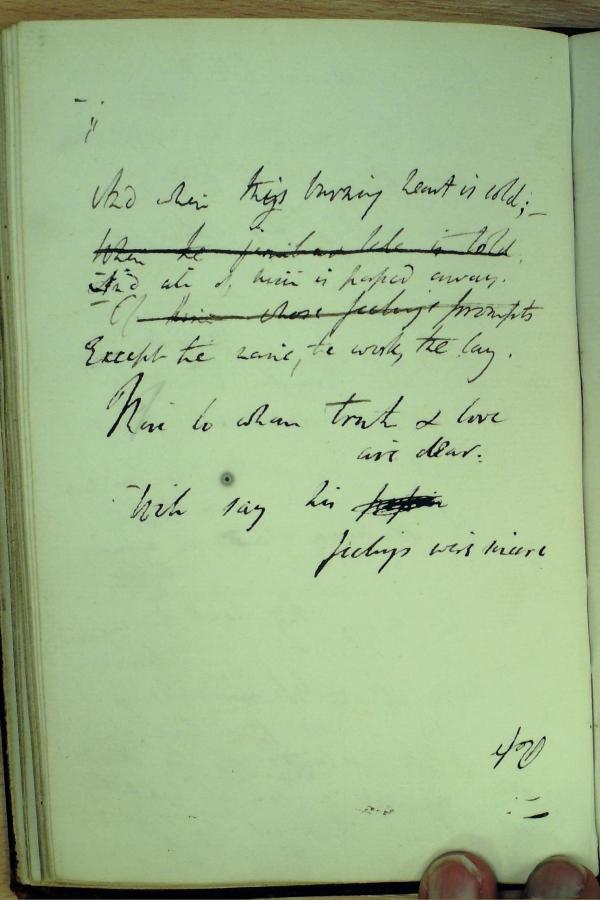 And when this burning heart is cold;
When the familiar tale is told
And all of mine is passed away.
Of him whose feelings prompts
Except the name, the work, the lay.
Now to whom truth & love
are dear.
Will say his
feelings were sincere